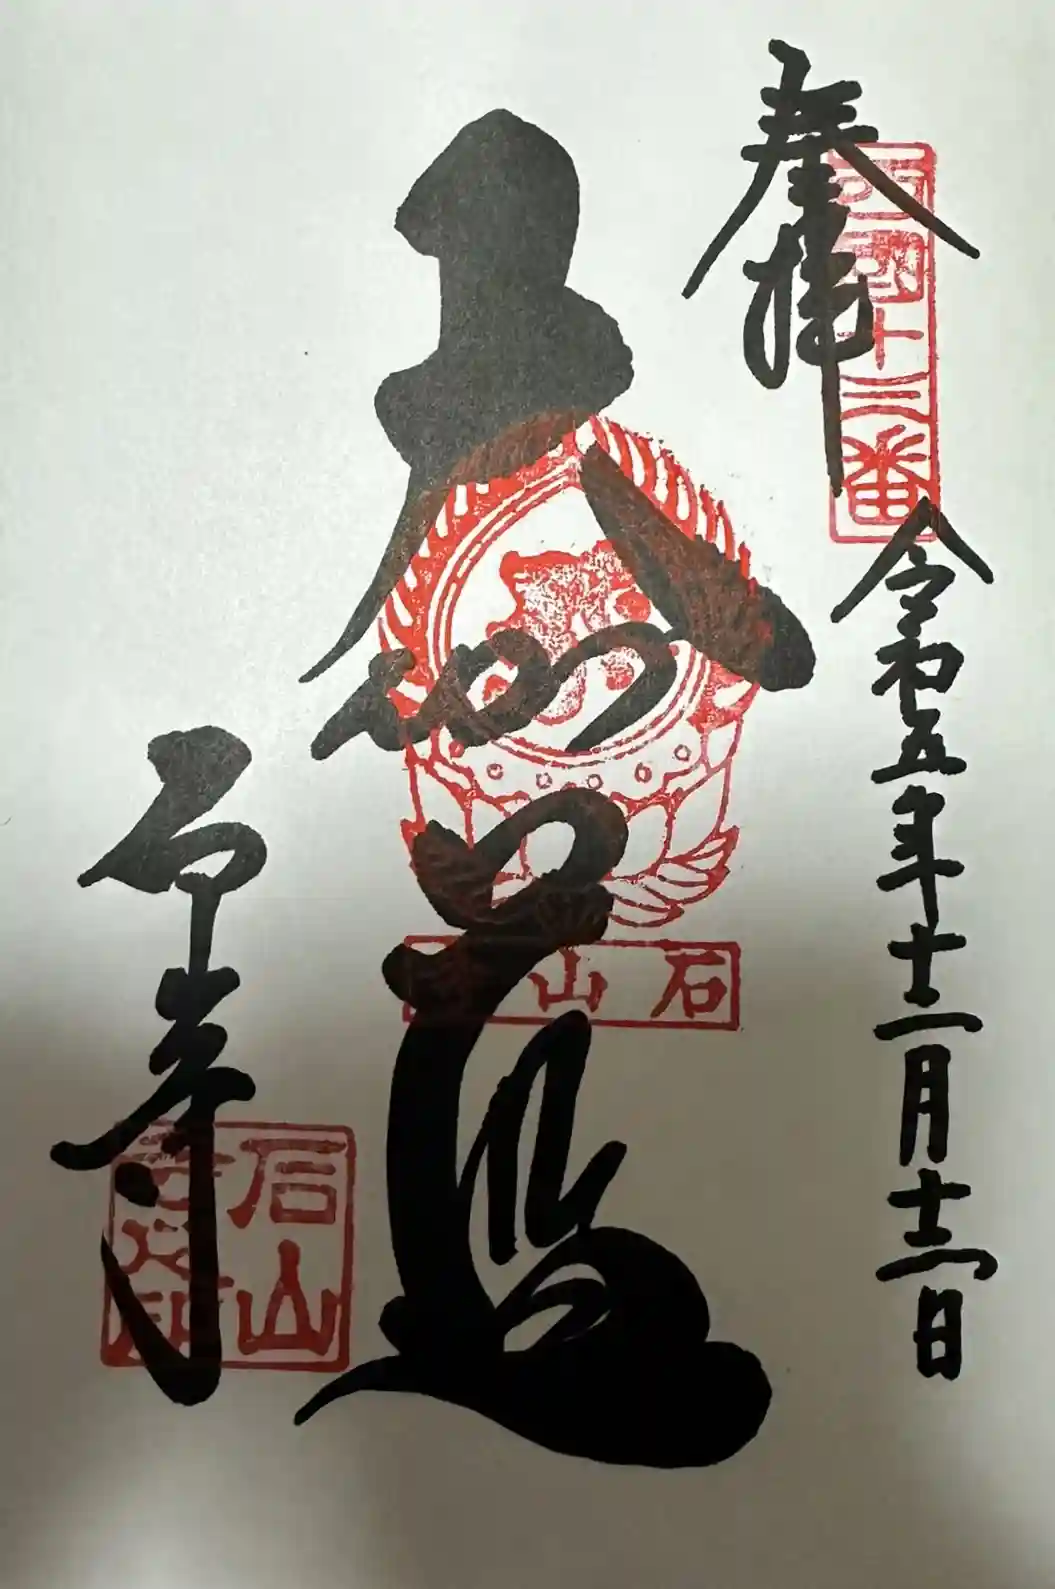 奉拝
西國十三番
令和五年十二月十三日
大伽藍
石山寺
石山寺
石山